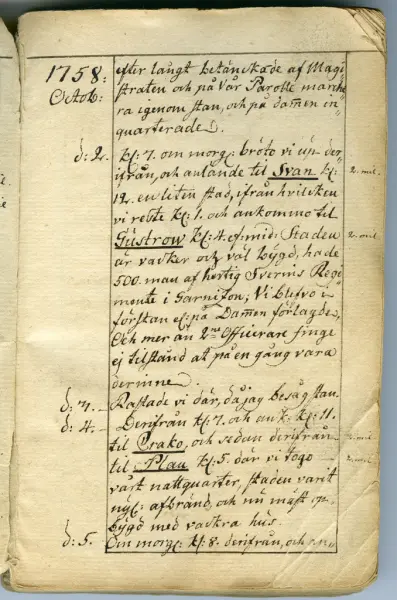 1758. efter långt betänckade af Magi
Octob: straten och på Vår Parolle marche
ra igenom stan, och på damen in
quarterade.
d: 2. kl: 7. om morg: bröto vi up der
ifrån, och anlände til Svan kl: 2. mil.
12. en liten stad, ifrån hvilcken
vi reste kl: 1. och ankommo til
Güstrow kl: 4. ef: mid: Staden 2. mil
är vacker och väl bÿgd, hade
500. man af hertig Sverins Regi
mente i Garnison; Vi blefvo i
förstan på Damen förlagde,
Och mer än 2ne Officerare finge
ej tilstånd at på en gång vara
derinne.
d: 3. Rastade vi där, då jag besåg stan.
d: 4. Derifrån kl: 7. och ank: kl: 11.
til Crako, och sedan derifrån 2. mil
til Plau kl: 5. där vi togo 2. mil.
vårt nattquarter, staden varit
nÿl: afbränd, och nu mäst up
bÿgd med vackra hus.
d: 5. Om morg: kl: 8. derifrån, och an